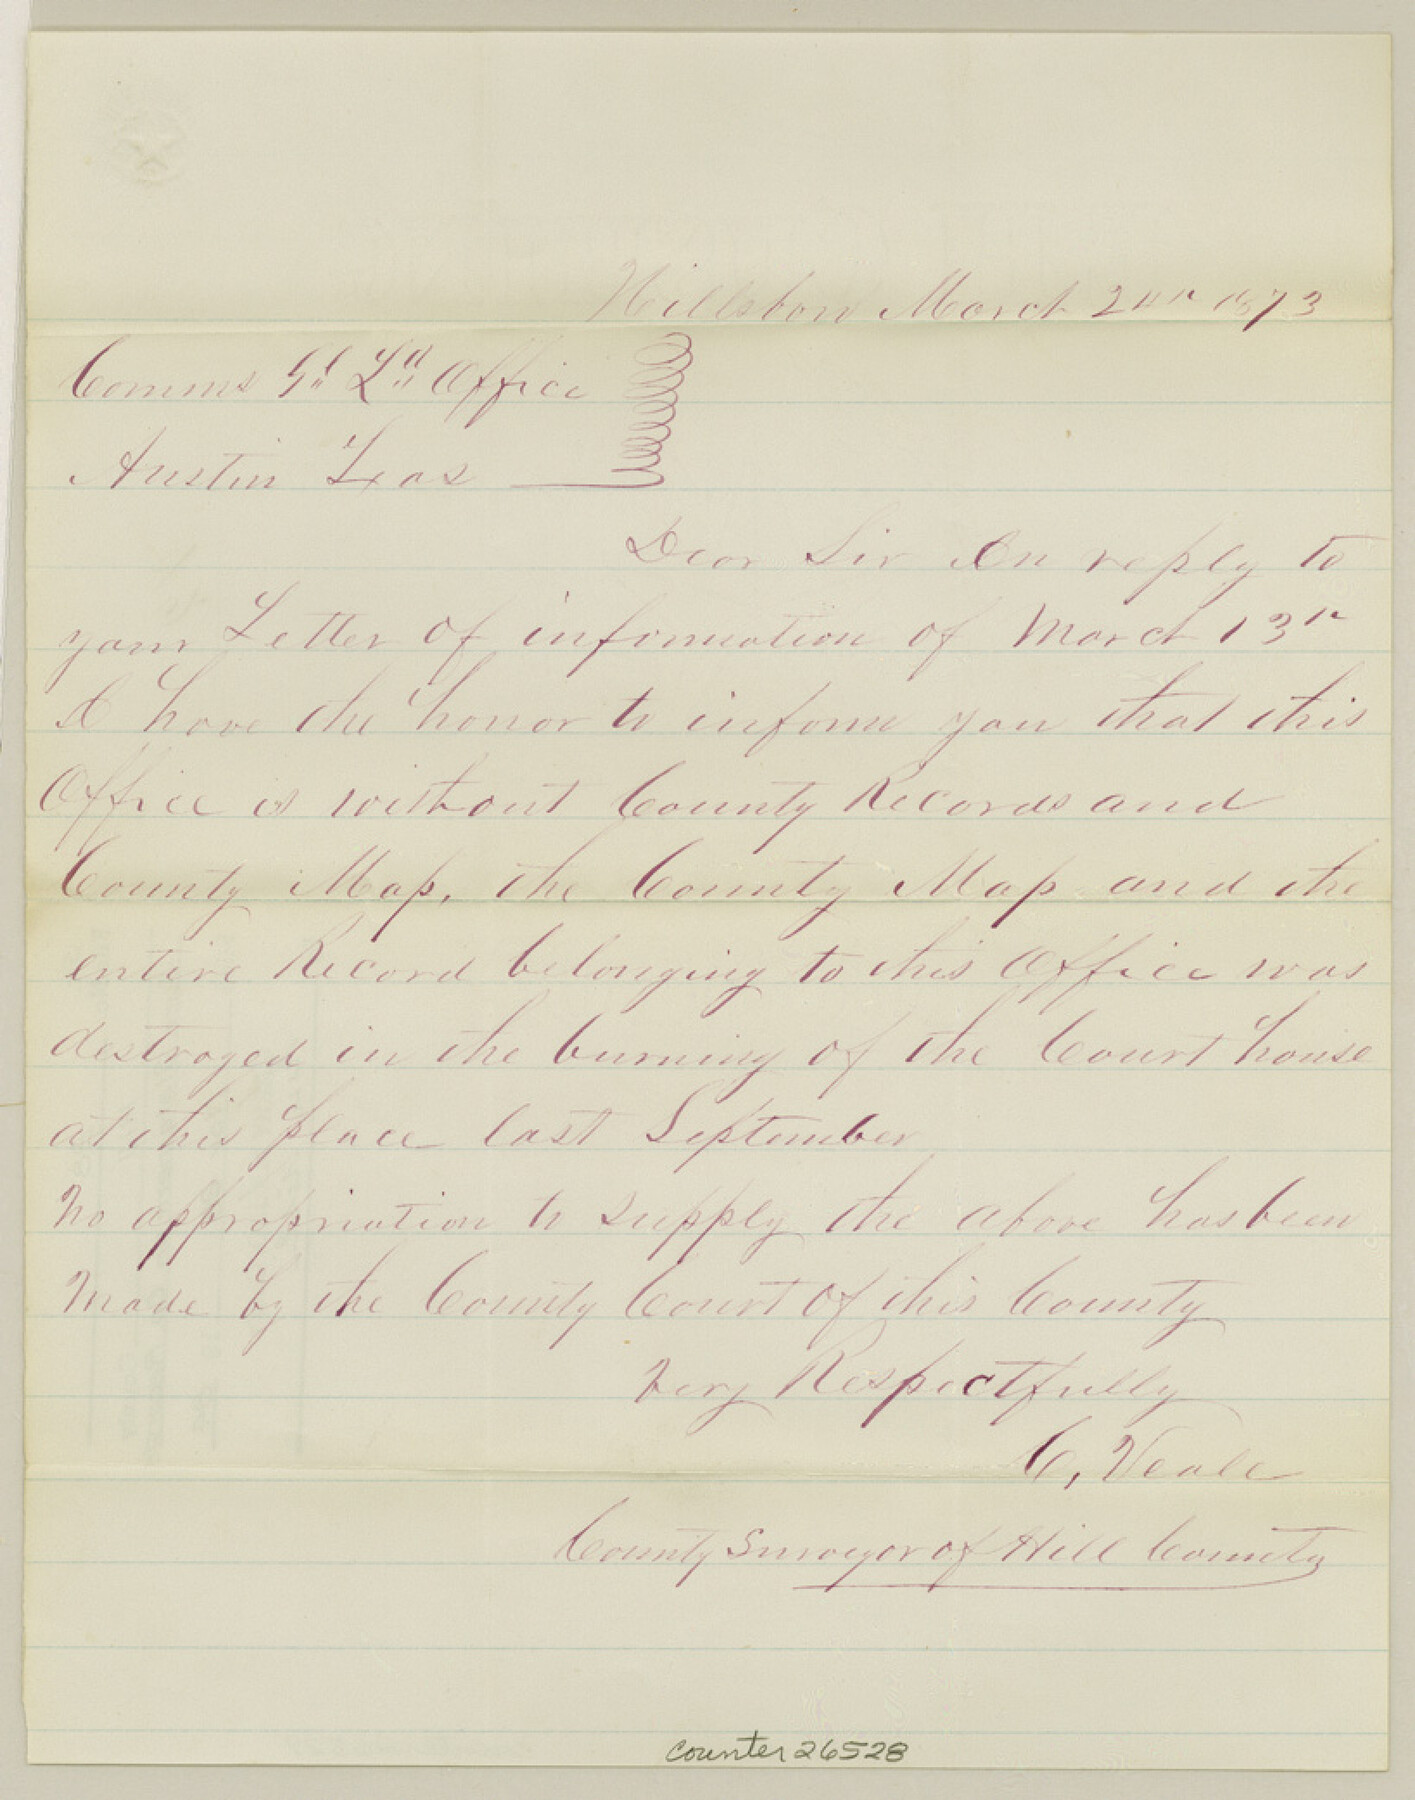 Hillsboro March 24th 1873
Comms Gl Ld Office
Austin Texas
Dear Sir In reply to
your Letter of information of March 13th
I have the honor to inform you that this
Office is without County Records and
County Map, the County Map and the
entire Record belonging to this Office was
destroyed in the burning of the Court house
at this place last September
No appropriation to supply the above has been
made by the County Court of this County
Very Respectfully
C, Veale
County Surveyor of Hill County
counter 26528